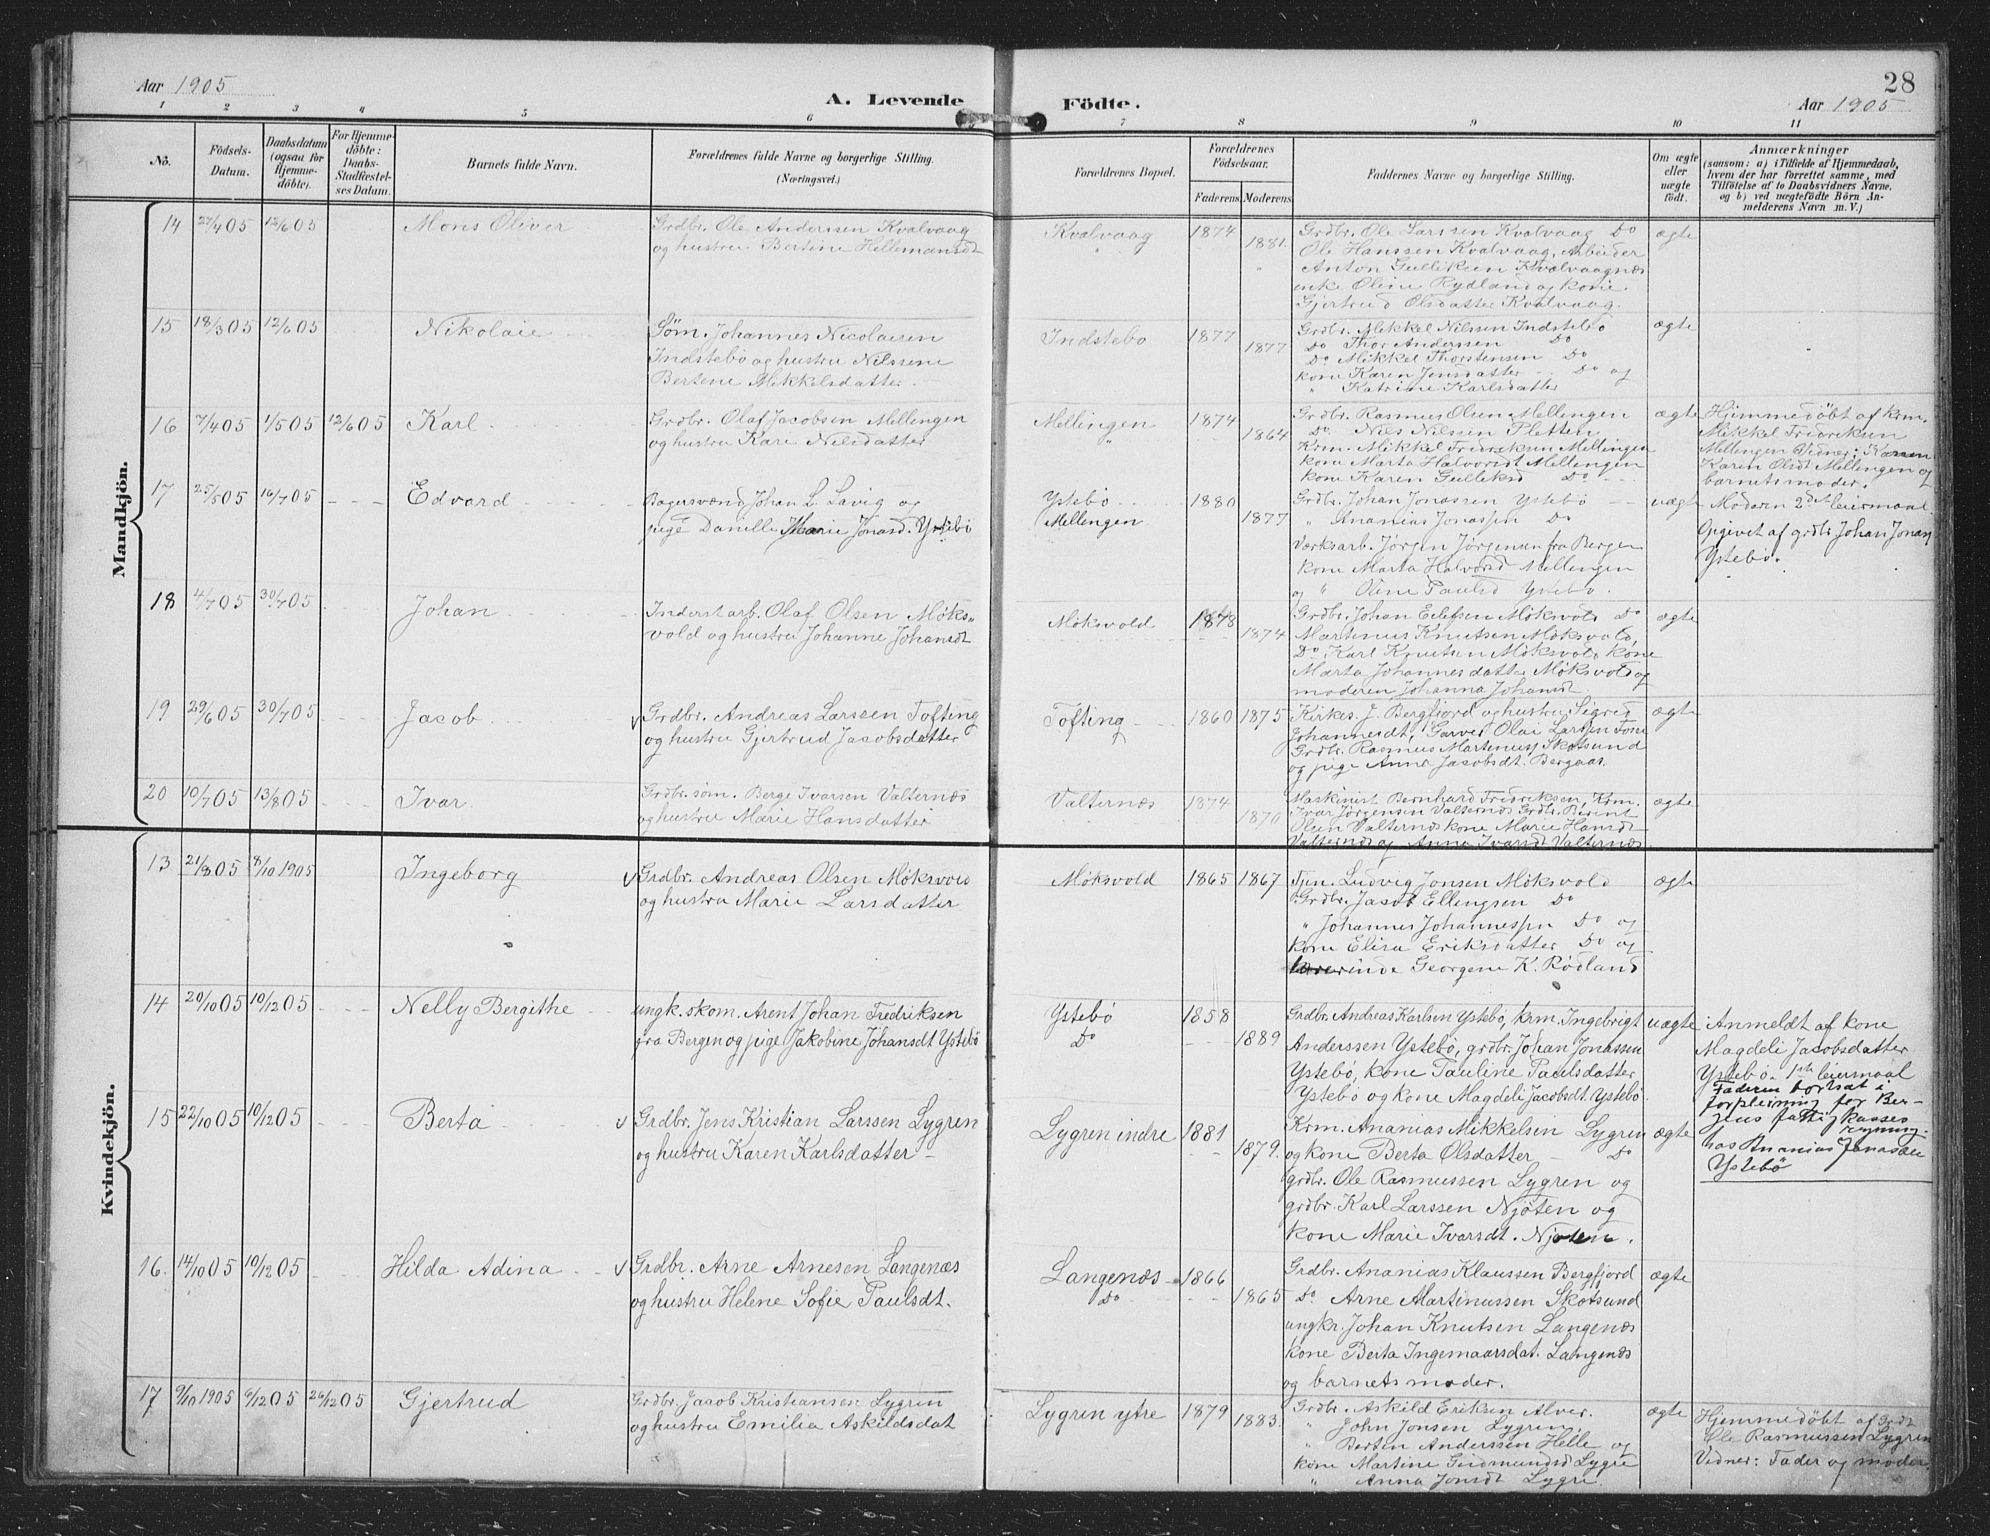 28
Aar 1905
A. Levende Födte.
Aar 1905
1 2 3 4 5 6 7 8 9 10 11
No.
Födsels-
Datum.
Daabsdatum
(ogsaa for
Hjemme-
döbte).
For Hjemme-
döbte:
Daabs-
Stadfæstel-
ses Datum.
Barnets fulde Navn.
Forældrenes fulde Navne og borgerlige Stilling.
(Næringsvei.)
Forældrenes Bopæl.
Forældrenes
Födselsaar.
Faderens Moderens
Faddernes Navne og borgerlige Stilling.
Om ægte
eller
uægte
födt.
Anmærkninger
(saasom: a) i Tilfælde af Hjemmedaab,
hvem der har forrettet samme, med
Tilföielse af to Daabsvidners Navne,
og b) ved uægtefödte Börn An-
melderens Navn m. V.)
Mandkjön.
14 27/4 05 12/6 05 Mons Oliver
Grdbr. Ole Anderssen Kvalvaag
og hustru Bertine Hellemansdt
Kvalvaag 1874 1881.
Grdbr. Ole Larssen Kvalvaag Do
Ole Hanssen Kvalvaag, Arbeider
Anton Gulliksen Kvalvaagnæs
enke Oline Rydland og kone
Gjertrud Olsdatter Kvalvaag.
ægte
15 18/3 05 12/6 05 Nikolaie
Søm. Johannes Nicolaisen
Indstebø og hustru Nilssene
Bertene Mikkelsdatter.
Indstebø 1877 1877
Grdbr. Mikkel Nilssen Indstebø
Do Thor Anderssen Do
Do Mikkel Thorstensen Do
kone Karen Jensdatter Do og
" Katrine Karlsdatter
ægte
16 7/4 05 1/5 05 12/6 05 Karl
Grdbr. Olaf Jacobsen Mellingen
og hustru Kari Nilsdatter
Mellingen 1874 1864
Grdbr. Rasmus Olsen Mellingen
Do Nils Nilssen Pletten
Krm. Mikkel Fredriksen Mellingen
kone Marta Halvorsdt Mellingen
kone Karen Gulliksd Do
ægte
Hjemmedöbt af krm.
Mikkel Fredriksen
Mellingen Vidner:
Karen Olsdt Mellingen og
barnets moder.
17 25/5 05 16/7 05 Edvard
Bagersvend Johan L Lavig og
pige Danille Marie Jonasd. Ystebö
Ystebö
Mellingen 1880 1877
Grdbr. Johan Jonassen Ystebö
" Ananias Jonassen Do
Værksarb. Jörgen Jörgensen fra Bergen
kone Marta Halvorsd Mellingen
og " Oline Paulsd Ystebö.
uægte
Moderen 2det leiermaal.
Opgivet af grdbr Johan Jonas
Ystebö.
18 4/7 05 30/7 05 Johan
Inderstarb. Olaf Olsen Möks-
vold og hustru Johanne Johansdt
Möksvold 1874
Grdbr. Johan Eilefsen Möksvold Do
Martenus Knutsen Möksvold,
Do Karl Knutsen Möksvold, kone
Marta Johannesdatter Möksvold og
moderen Johanna Johansdt
ægte
19 29/6 05 30/7 05 Jacob
Grdbr. Andreas Larssen Tofting
og hustru Gjertrud Jacobsdatter
Tofting 1860 1875
Kirkes. J. Bergfjord og hustru Sigred
Johannesdt, Garver Olai Larssen Fosse
Grdbr. Rasmus Martenuss Skotsund
og pige Anna Jacobsdt. Bergaas.
ægte
20 10/7 05 13/8 05 Ivar
Grdbr. søm. Berge Ivarsen Valternæs
og hustru Marie Hansdatter
Valternæs 1874 1870
Maskinist Bernhard Fredriksen, Krm.
Ivar Jörgensen Valternæs Grdbr. Berent
Olsen Valternæs kone Marie Hansdt
Valternæs og Anna Ivarsdt Valternæs
ægte
Kvindekjön.
13 21/8 05 8/10 1905 Ingeborg
Grdbr. Andreas Olsen Möksvold
og hustru Marie Larsdatter
Möksvold 1865 1867
Tjen. Ludvig Jonsen Möksvold
Grdbr. Jacob Ellingsen Do
" Johannes Johannessen Do og
kone Elisa Eriksdatter Do og
lærerinde Georgene K. Rödland
ægte
14 20/10 05 10/12 05 Nelly Bergithe
ungk. skom. Arent Johan Fredriksen
fra Bergen og pige Jakobine Johansdt Ystebö
Ystebö
Do 1858 1889
Grdbr. Andreas Karlsen Ystebö, krm. Ingebrigt
Anderssen Ystebö, grdbr. Johan Jonassen
Ystebö, kone Pauline Paulsdatter
Ystebö og kone Magdeli Jacobsdt Ystebö.
uægte
Anmeldt af kone
Magdeli Jacobsdatter
Ystebö. 1ste leiermaal
Faderen bortsat i
forpleining for Ber-
gens fattigkasses
regning.
hos Ananias Jonassen
Ystebö
15 22/10 05 10/12 05 Berta
Grdbr. Jens Kristian Larssen Lygren
og hustru Karen Karlsdatter
Lygren indre 1881 1879.
Krm. Ananias Mikkelsen Lygren
og kone Berta Olsdatter Do
grdbr. Ole Rasmussen Lygren og
grdbr. Karl Larssen Njöten og
kone Marie Ivarsdt. Njöten.
ægte
16. 14/10 05 10/12 05 Hilda Adina
Grdbr. Arne Arnesen Langenæs
og hustru Helene Sofie Paulsdt.
Langenæs
Do 1866 1865
Grdbr. Ananias Klaussen Bergfjord
Do Arne Martinussen Skotsund
ungkr. Johan Knutsen Langenæs
kone Berta Ingemaarsdat. Langenæs
og barnets moder.
ægte
17 9/10 1905 6/12 05 26/12 05 Gjertrud
Grdbr. Jacob Kristiansen Lygren
og hustru Emilia Askildsdat
Lygren ytre 1879 1883.
Grdbr. Askild Eriksen Alver.
" John Jonsen Lygren,
" Berten Anderssen Helle og
kone Martine Gudmundsd Lygre
" Anna Jonsdt Lygre
ægte
Hjemmedöbt af Grdr
Ole Rasmussen Lygren
Vidner: Fader og moder